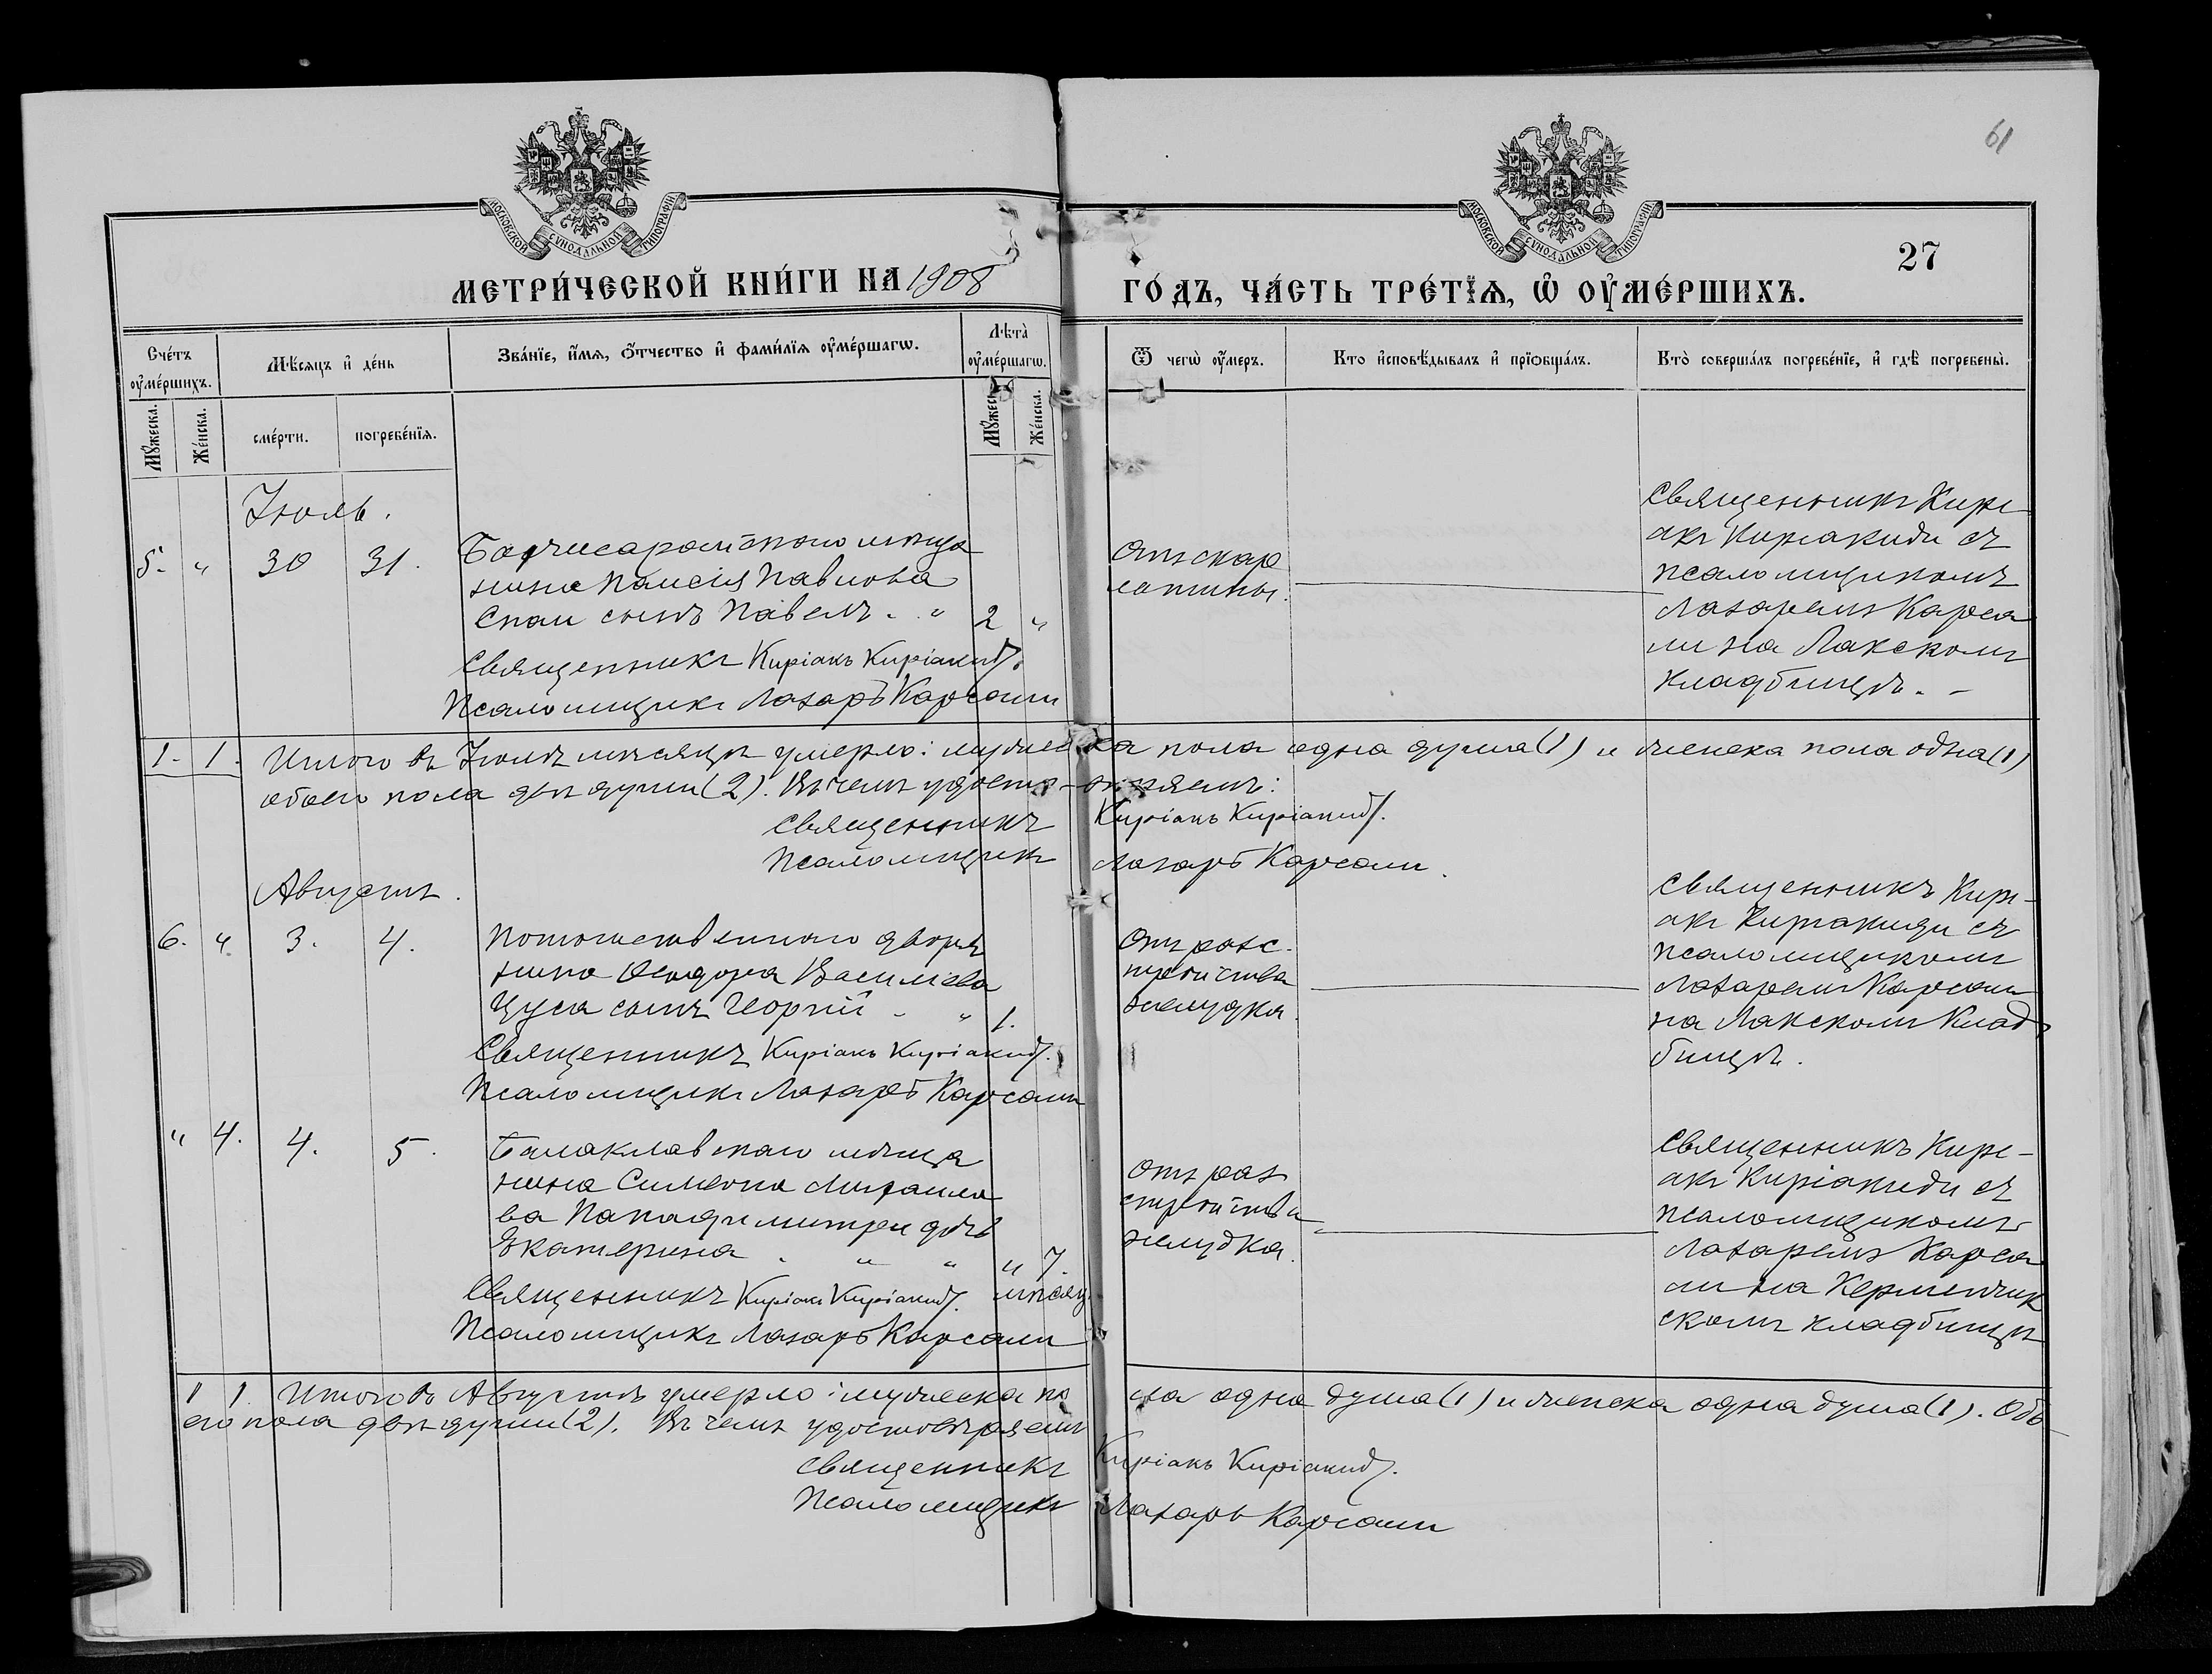 61
МОСКОВСКОЙ СѴНОДАЛЬНОЙ ТИПОГРАФІИ
МОСКОВСКОЙ СѴНОДАЛЬНОЙ ТИПОГРАФІИ
27
МЕТРИ́ЧЕСКОЙ КНИ́ГИ НА 1908 ГО́ДЪ, ЧА́СТЬ ТРЕ́ТЇѦ, Ѡ҆ ОУ҆МЕ́РШИХЪ.
Сче́тъ оу҆ме́ршихъ.
Мѣ́сяцъ и҆ де́нь
Зва́нїе, и҆́мѧ, ѻ҆́тчество и҆ фами́лїѧ оу҆ме́ршагѡ.
Лѣта̀ оу҆ме́ршагѡ.
Ѿ чегѡ̀ оу҆́меръ.
Кто и҆сповѣ́дывалъ и҆ прїѡбща́лъ.
Кто̀ соверша́лъ погребе́нїе, и҆ гдѣ̀ погребены̀.
Мꙋ́жеска.
Же́нска.
сме́рти.
погребе́нїѧ.
Мꙋ́жеск
Же́нска.
Іюль.
5. " 30 31.
Бахчисарайскаго мѣща
нина Паисія Павлова
Спаи сынъ Павелъ. . " 2 "
Священникъ Киріакъ Киріакиди.
Псаломщикъ Лазарь Карсали
Отъ скар
латины.
Священникъ Кирі
акъ Киріакиди съ
псаломщикомъ
Лазаремъ Карса
ли на Лакскомъ
кладбищѣ. -
1. 1. Итого въ Іюлѣ мѣсяцѣ умерло: мужеска пола одна душа (1) и женска пола одна (1)
обоего пола двѣ души (2). Въ чемъ удостовѣряемъ:
Священникъ Киріакъ Киріакиди.
Псаломщикъ Лазарь Карсали.
Августъ.
6. " 3. 4.
Потомственнаго дворя
нина Ѳеодора Василіева
Цуса сынъ Георгій - " 1.
Священникъ Киріакъ Киріакиди.
Псаломщикъ Лазарь Карсали
Отъ разс-
тройства
желудка.
Священникъ Кирі-
акъ Киріакиди съ
псаломщикомъ
Лазаремъ Карсали
на Лакскомъ Клад
бищѣ.
" 4. 4. 5.
Балаклавскаго мѣща
нина Симеона Михаило
ва Пападимитри дочь
Екатерина . " " " 7.
мѣсяц.
Священникъ Киріакъ Киріакиди.
Псаломщикъ Лазарь Карсали
Отъ раз
стройства
желудка.
Священникъ Кирі-
акъ Киріакиди съ
псаломщикомъ
Лазаремъ Карса
ли на Керменчик
скомъ кладбищѣ
1 1. Итого въ Августѣ умерло: мужеска пола одна душа (1) и женска одна душа (1). Обо
его пола двѣ души (2). Въ чемъ удостовѣряемъ
Священникъ Киріакъ Киріакиди.
Псаломщикъ Лазарь Карсали